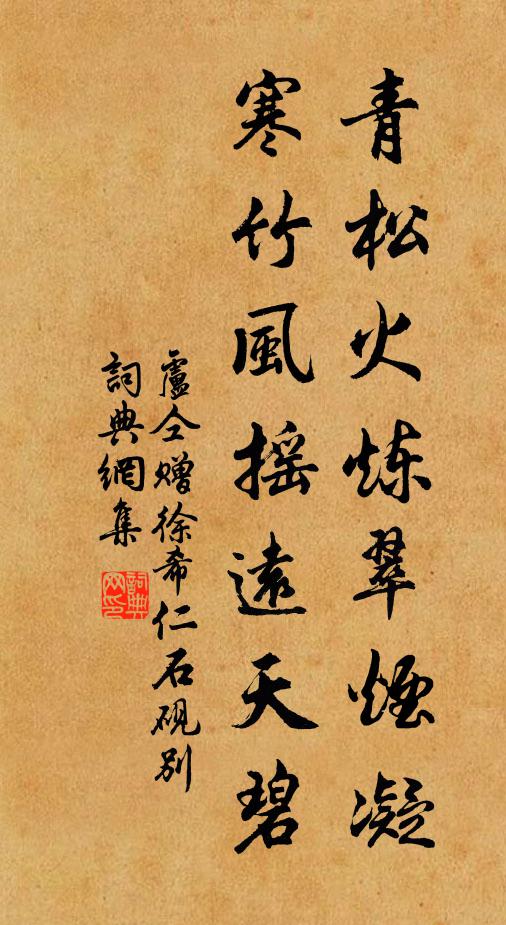 青松火炼翠煙凝
寒竹風摇遠天碧
盧仝赠徐希仁石硯别
詞典網集
詞典
网印